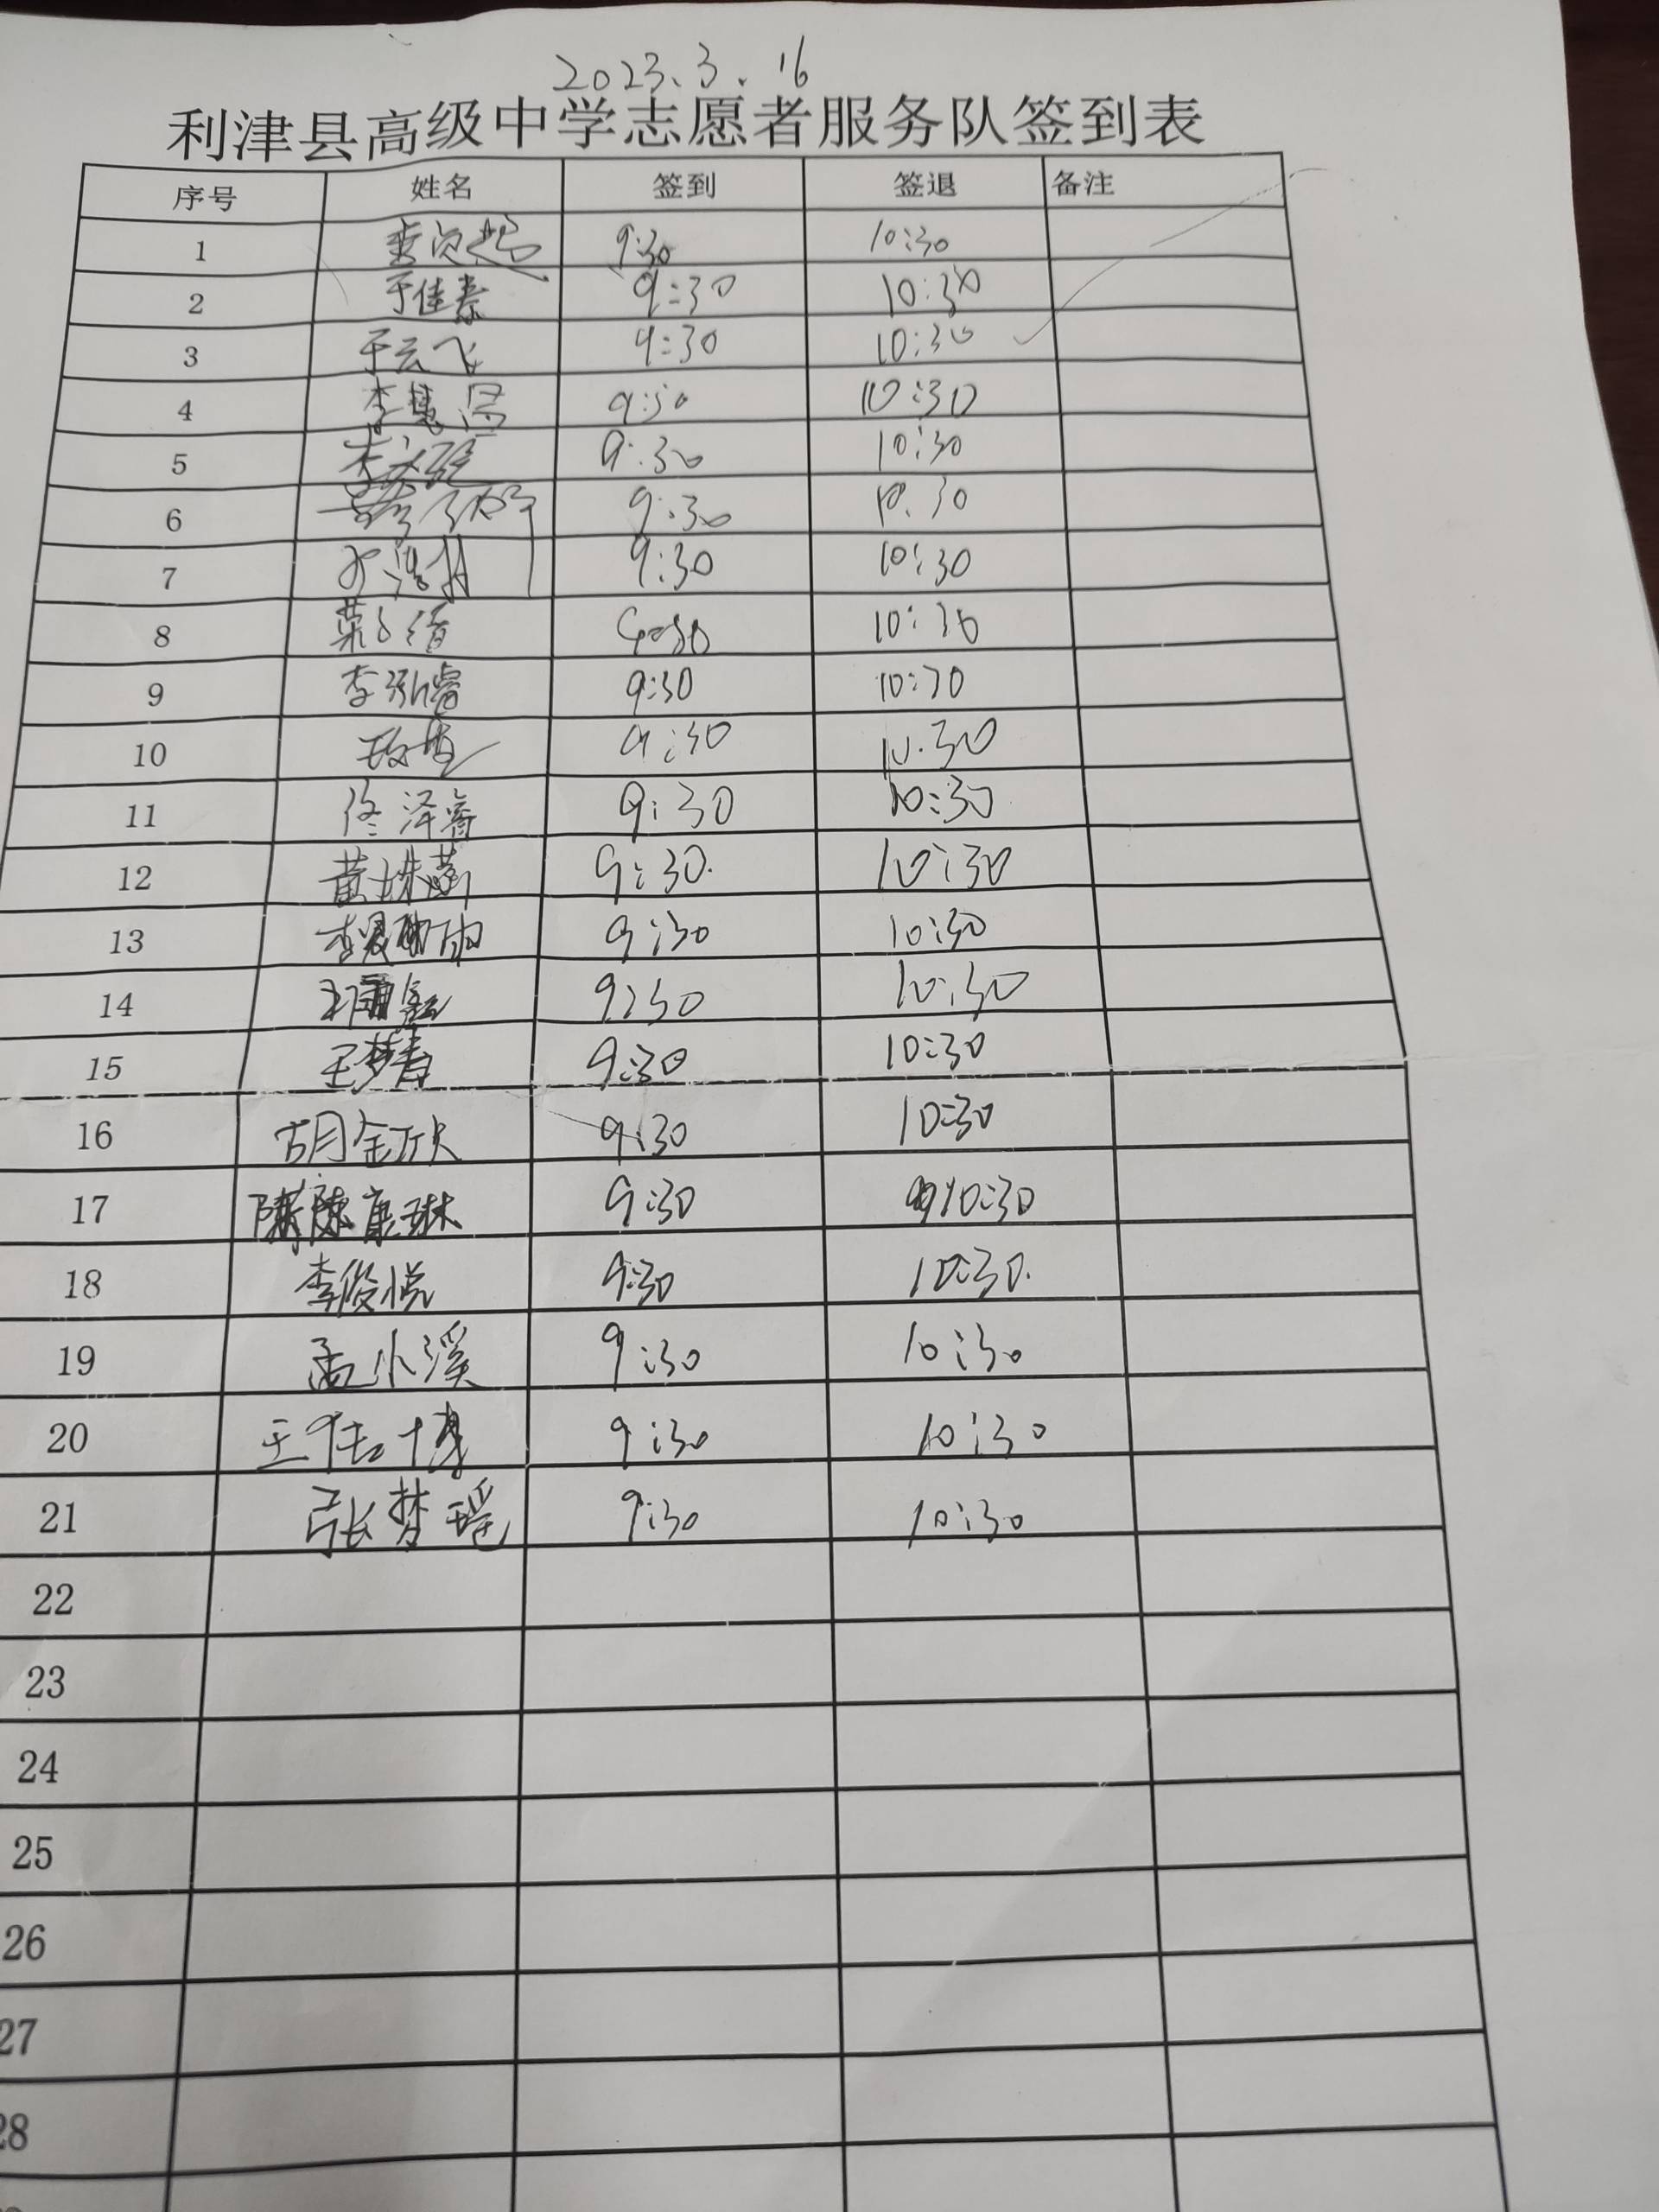 2023.3.16
利津县高级中学志愿者服务队签到表
序号 姓名 签到 签退 备注
1 9:30 10:30
2 于佳泰 9:30 10:30
3 于云飞 9:30 10:30
4 李 9:30 10:30
5 李 9:30 10:30
6 9:30 10:30
7 9:30 10:30
8 9:30 10:30
9 李泓睿 9:30 10:30
10 9:30 10:30
11 佟泽睿 9:30 10:30
12 黄姝菡 9:30. 10:30
13 李 雨 9:30 10:30
14 王雨 9:30 10:30
15 王梦春 9:30 10:30
16 胡金欣 9:30 10:30
17 陈康琳 9:30 10:30
18 李俊悦 9:30 10:30.
19 孟小溪 9:30 10:30
20 王 博 9:30 10:30
21 张梦瑶 9:30 10:30
22
23
24
25
26
27
28